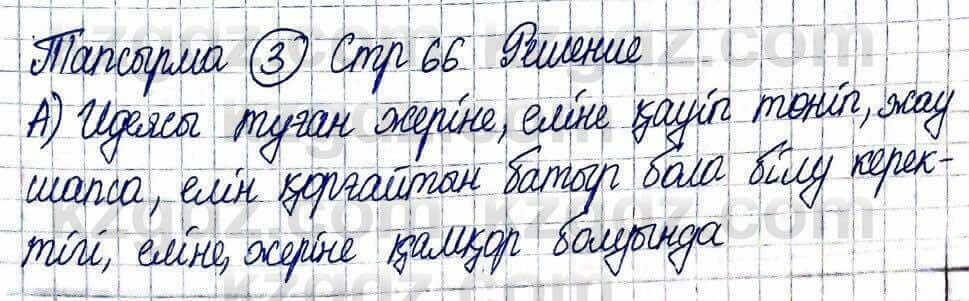 Тапсырма 3 Стр 66 Решение
А) Идеясы туған жеріне, еліне қауіп төніп, жау
шапса, елін қорғайтын батыр бола білу керек-
тігі, еліне, жеріне қамқор болуында